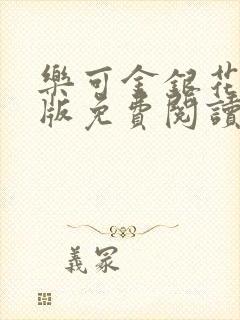 樂可金銀花
版免費閱讀
義冢